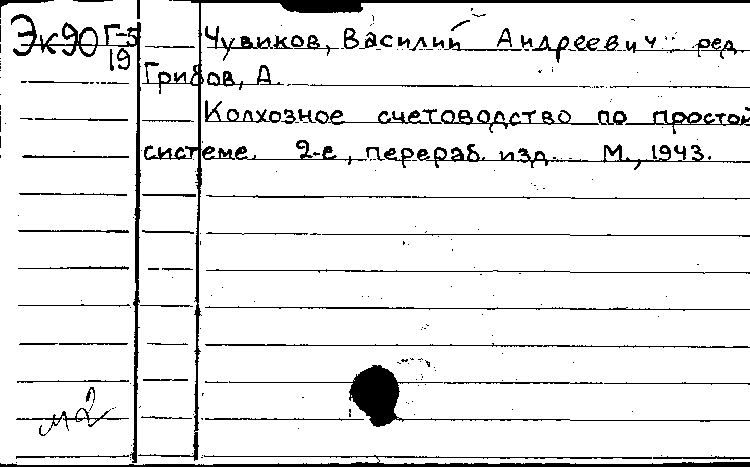 Эк90 Г-5
19
Чувиков, Василий Андреевич ред.
Грибов, А.
Колхозное счетоводство по простой
системе. 2-е, перераб. изд. М., 1943.
м2